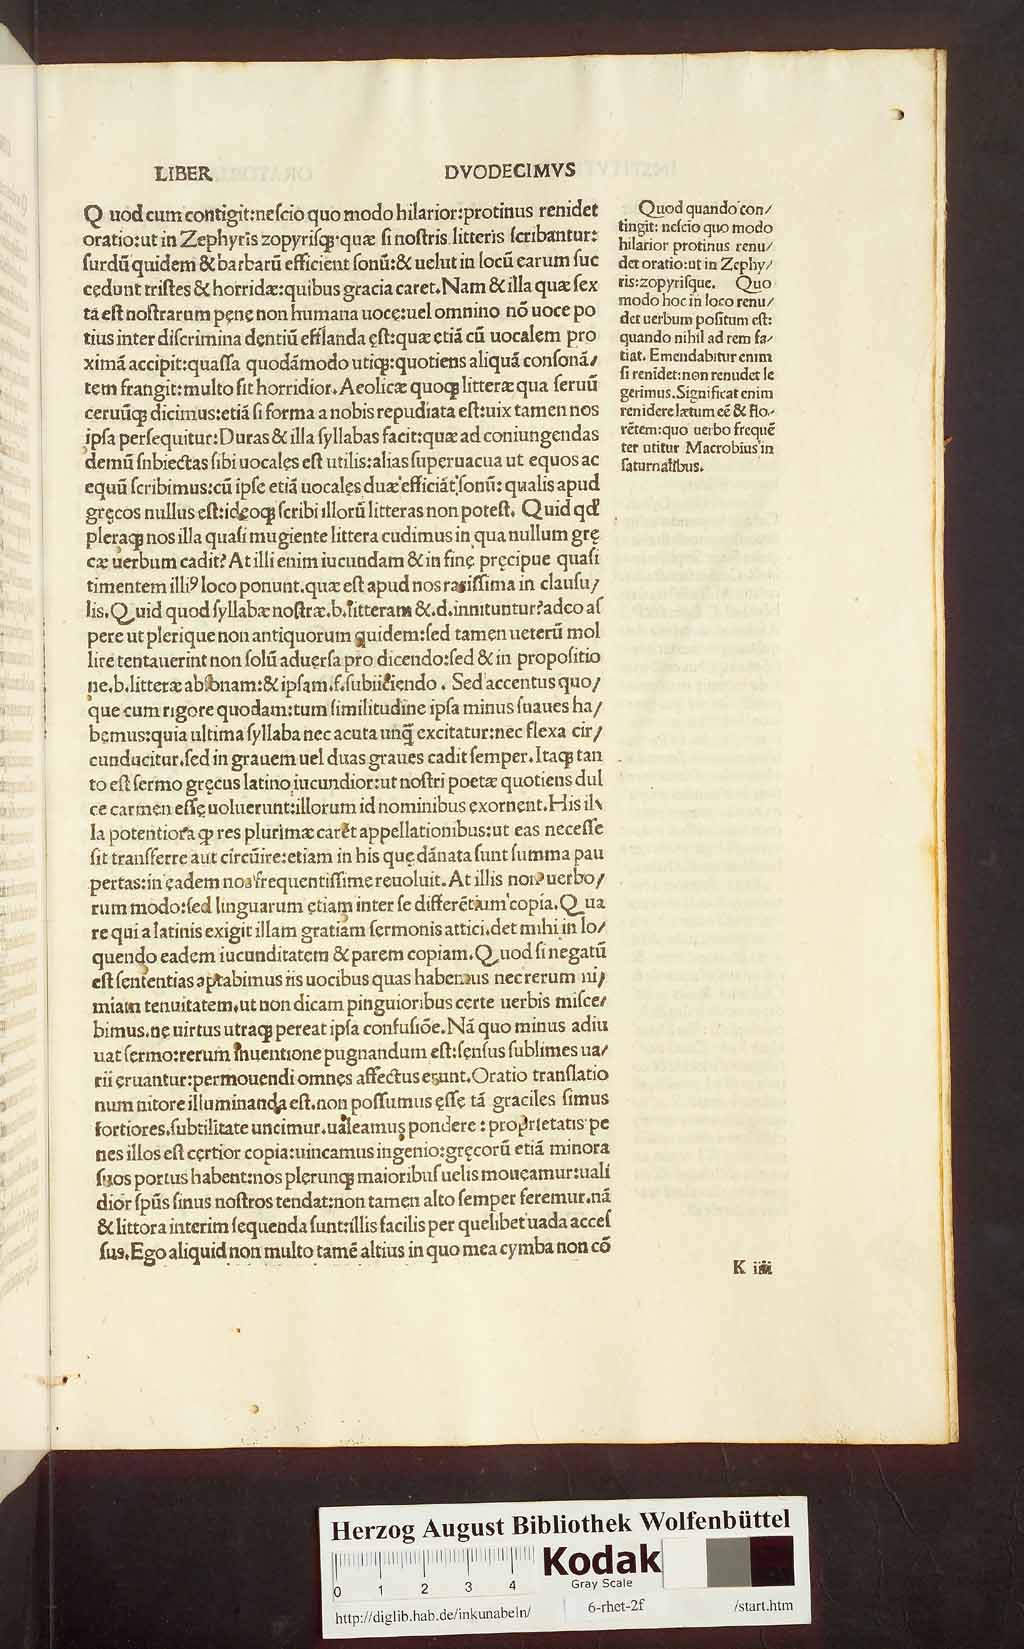 LIBER DVODECIMVS
Q uod cum contigit:neſcio quo modo hilarior:protinus renidet
oratio:ut in Zephyris zopyriſqꝫ·quæ ſi noſtris litteris ſcribantur:
ſurdū quidem & barbarū efficient ſonū:& uelut in locū earum ſuc
cędunt triſtes & horridæ:quibus gracia caret.Nam & illa quæ ſex
ta eſt noſtrarum pęnę non humana uoce:uel omnino nō uoce po
tius inter diſcrimina dentiū efflanda ęſt:quæ etiā cū uocalem pro
ximā accipit:quaſſa quodāmodo utiqꝫ:quotiens aliquā conſonā/
tem frangit:multo fit horridior.Aeolicæ quoqꝫ litteræ qua ſeruū
ceruūqꝫ dicimus:etiā ſi forma a nobis repudiata eſt:uix tamen nos
ipſa perſequitur:Duras & illa ſyllabas facit:quæ ad coniungendas
demū ſnbiectas ſibi uocales eſt utilis:alias ſuperuacua ut equos ac
equū ſcribimus:cū ipſe etiā uocales duæ efficiāt ſonū: qualis apud
gręcos nullus eſt:ideoqꝫ ſcribi illorū litteras non poteſt. Quid qd'
pleraqꝫ nos illa quaſi mugiente littera cudimus in qua nullum grę
cæ uerbum cadit? At illi enim iucundam & in finę pręcipue quaſi
timentem illiꝰ loco ponunt.quæ eſt apud nos rariſſima in clauſu/
lis.Quid quod ſyllabæ noſtræ.b.litteram &.d.innituntur?adeo aſ
pere ut plerique non antiquorum quidem:ſed tamen ueterū mol
lire tentauerint non ſolū aduerſa pro dicendo:ſed & in propoſitio
ne.b.litteræ abſonam:& ipſam.ſ.ſubiiciendo. Sed accentus quo/
que cum rigore quodam:tum ſimilitudine ipſa minus ſuaues ha/
bemus:quia ultima ſyllaba nec acuta unq̃ excitatur:nec flexa cir/
cunducitur.ſed in grauem uel duas graues cadit ſemper.Itaqꝫ tan
to eſt ſermo gręcus latino iucundior:ut noſtri poetæ quotiens dul
ce carmen eſſę uoluerunt:illorum id nominibus exornent.His il\
la potentiora qꝫ res plurimæ carēt appellationibus:ut eas neceſſe
ſit tranſferre aut circūire:etiam in his quę dānata ſunt ſumma pau
pertas:in eadem nos frequentiſſime reuoluit.At illis non uerbo/
rum modo:ſed linguarum etiam inter ſe differētium copia.Qua
re qui a latinis exigit illam gratiam ſermonis attici.det mihi in lo/
quendo eadem iucunditatem & parem copiam.Quod ſi negatū
eſt ſententias aptabimus iis uocibus quas habemus nec rerum ni/
miam tenuitatem.ut non dicam pinguioribus certe uerbis miſce/
bimus.ne uirtus utraqꝫ pereat ipſa confuſiōe.Nā quo minus adiu
uat ſermo:rerum inuentione pugnandum eſt:ſenſus ſublimes ua/
rii eruantur:permouendi omnes affectus erunt.Oratio tranſlatio
num nitore illuminanda eſt.non poſſumus ęſſę tā graciles ſimus
fortiores.ſubtilitate uincimur.ualeamus pondere:proprietatis pe
nes illos eſt certior copia:uincamus ingenio:gręcorū etiā minora
ſuos portus habent:nos plerunqꝫ maioribuſ uelis mouęamur:uali
dior ſpūs ſinus noſtros tendat:non tamen alto ſemper feremur.nā
& littora interim ſequenda ſunt:illis facilis per quelibet uada acceſ
ſus.Ego aliquid non multo tamē altius in quo mea cymba non cō
Quod quando con/
tingit: neſcio quo modo
hilarior protinus renu/
det oratio:ut in Zephy/
ris:zopyriſque. Quo
modo hoc in loco renu/
det uerbum poſitum eſt:
quando nihil ad rem fa-
tiat. Emendabitur enim
ſi renidet:non renudet le
gerimus.Significat enim
renidere lætum eē & flo-
rētem:quo uerbo frequē
ter utitur Macrobius in
ſaturnalibus.
K iiii
Herzog August Bibliothek Wolfenbüttel
0 1 2 3 4
Kodak
Gray Scale
http://diglib.hab.de/inkunabeln/ 6-rhet-2f /start.htm